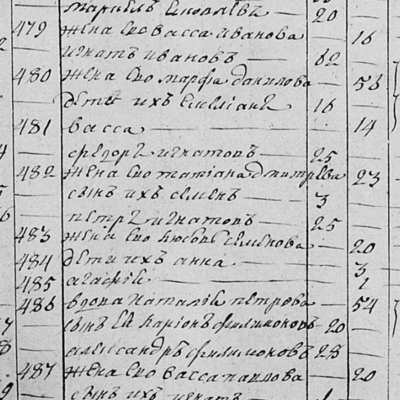 Яковлевъ 20
479 жена ево васса иванова 16
игнатъ ивановъ 62
480 жена ево марфа данилова 53
дети ихъ емелианъ 16
481 васса 14
федоръ игнатовъ 25
482 жена ево татиана дмитрева 23
сынъ ихъ семенъ 3
петръ игнатовъ 25
483 жена ево любовь семенова 20
484 дети ихъ анна 3
485 агафиѧ 1
486 вдова наталиѧ петрова 54
сынъ ей ларионъ филимоновъ 20
александръ филимоновъ 28
487 жена ево васса павлова 20
сынъ ихъ игнатъ